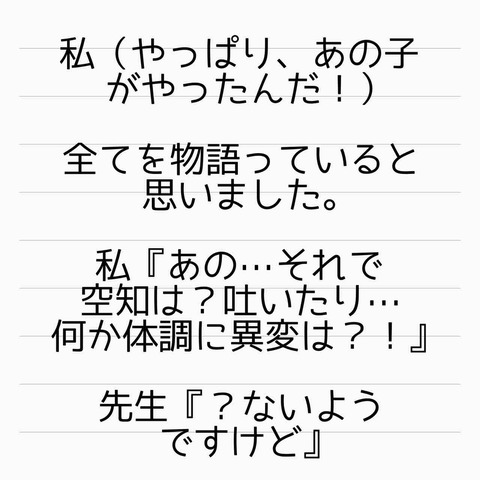 私（やっぱり、あの子
がやったんだ！）
全てを物語っていると
思いました。
私『あの…それで
空知は？吐いたり…
何か体調に異変は？！』
先生『？ないよう
ですけど』